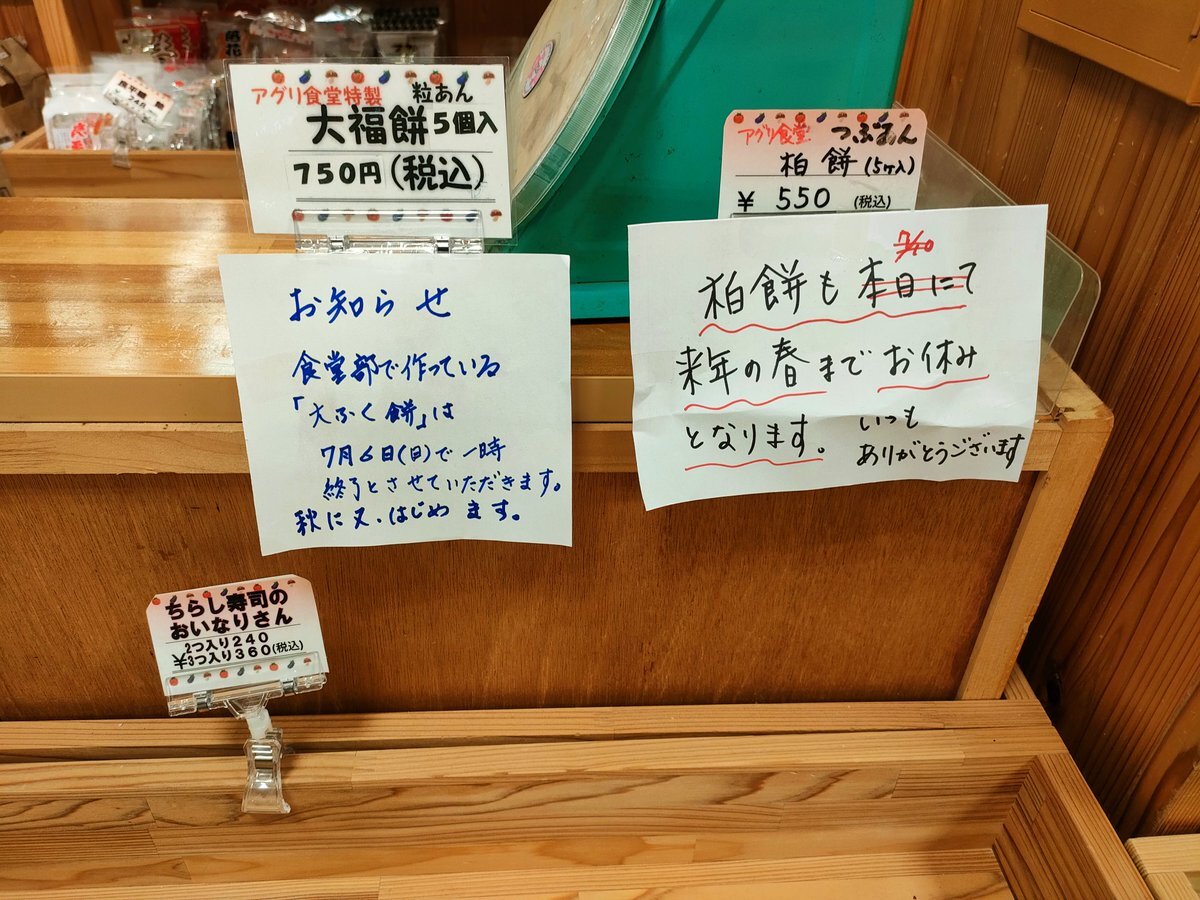 アグリ食堂特製 粒あん
大福餅 5個入
750円(税込)
アグリ食堂 つぶあん
柏餅 (5ヶ入)
¥ 550 (税込)
お知らせ
食堂部で作っている
「大ふく餅」は
7月6日(日)で一時
終了とさせていただきます。
秋に又、はじめます。
7/10
柏餅も本日にて
来年の春までお休み
となります。
いつも
ありがとうございます
ちらし寿司の
おいなりさん
2つ入り240
¥3つ入り360(税込)